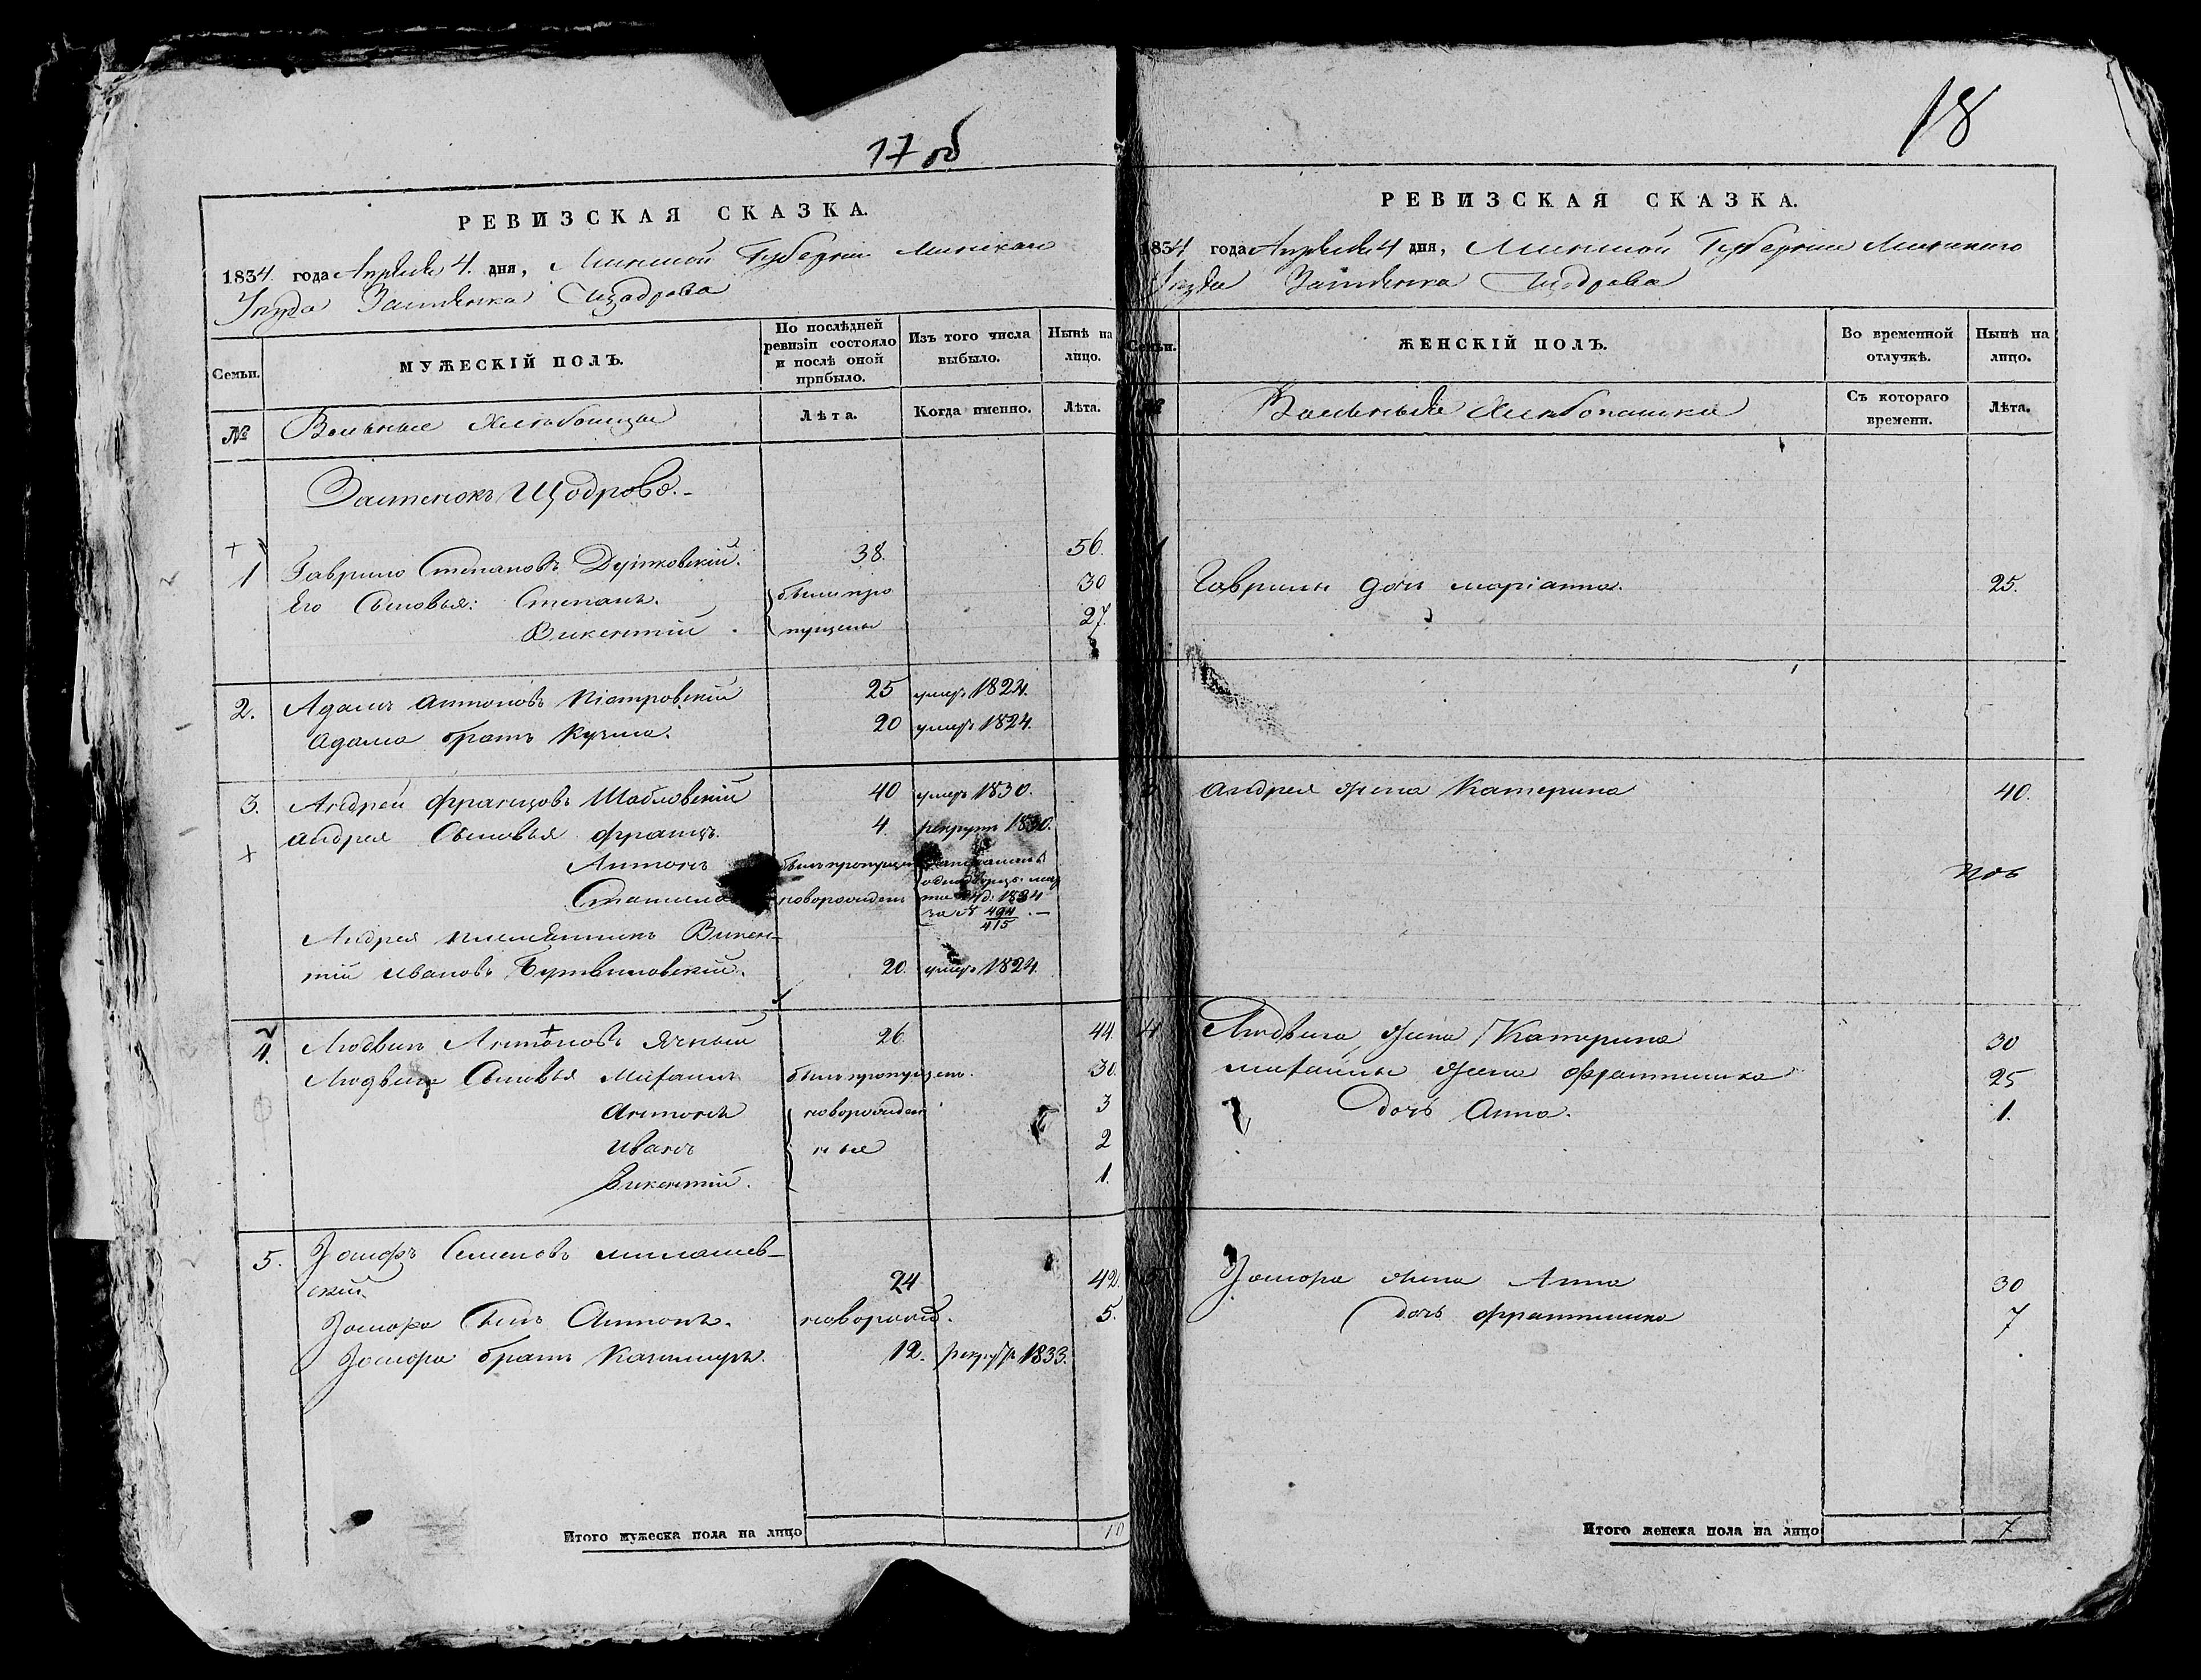 17 об
РЕВИЗСКАЯ СКАЗКА.
1834 года Апреля 4. дня, Минской Губернии Минскаго
Уезда Застенка Щодрова
Семьи.
МУЖЕСКІЙ ПОЛЪ.
По послѣдней ревизіи состояло и послѣ оной прибыло.
Изъ того числа выбыло.
Нынѣ на лицо.
№
Вольные Хлебопашцы
Лѣта.
Когда именно.
Лѣта.
Застенокъ Щодрово.
1 Гаврило Степановъ 38. 56.
Его Сыновья: Степанъ. были про 30
Викентий. пущены 27.
2. Адамъ Антоновъ Піотровскій 25 умеръ 1824.
Адама братъ Кузма. 20 умеръ 1824.
3. Андрей Францовъ Шабловскій 40 умеръ 1830.
Андрея Сыновья Францъ. 4. рекрутъ 1830.
Антонъ былъ пропущенъ
Станиславъ новорожденъ 1834
за № 494
415
Андрея племянникъ Викен-
тій Ивановъ 20. умеръ 1824.
4. Людвигъ Антоновъ Ячный 26 44.
Людвига Сыновья Михаилъ былъ пропущенъ. 30.
Антонъ новорожден 3
Иванъ ные 2
Викентій. 1.
5. Іосифъ Семеновъ Милашев-
скій 24 42.
Іосифа Сынъ Антонъ. новорожд. 5.
Іосифа братъ Казимиръ. 12. рекрутъ 1833.
Итого мужеска пола на лицо 10
18
РЕВИЗСКАЯ СКАЗКА.
1834 года Апреля 4 дня, Минской Губернии Минскаго
Уезда Застенка Щодрова
Семьи.
ЖЕНСКІЙ ПОЛЪ.
Во временной отлучкѣ.
Нынѣ на лицо.
№
Вольные Хлебопашки
Съ котораго времени.
Лѣта.
1 Гаврилы дочь Маріанна. 25.
3 Андрея жена Катерина 40.
4 Людвига жена Катерина 30
Михайлы жена Франтишка 25
дочь Анна. 1.
5 Іосифа жена Анна 30
дочь Франтишка 7
Итого женска пола на лицо 7